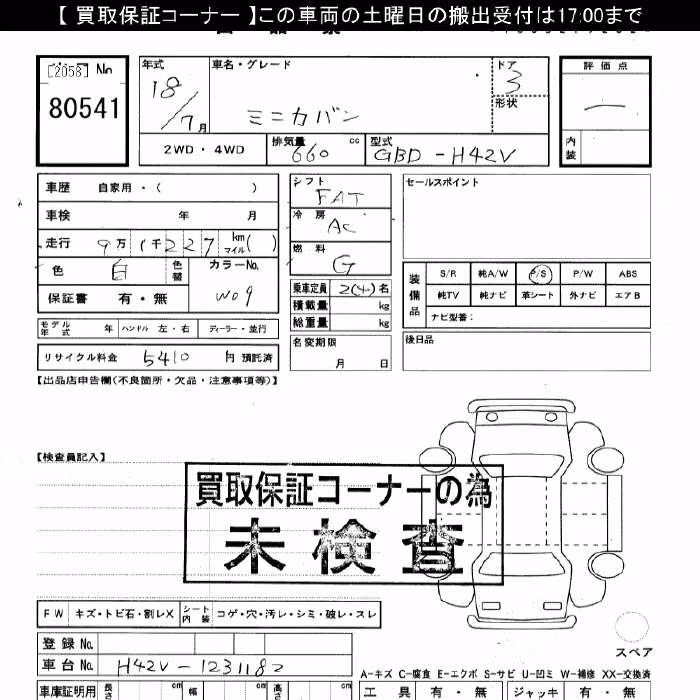 【 買取保証コーナー 】この車両の土曜日の搬出受付は17:00まで
[2058] No
80541
年式
18/7月
車名・グレード
ミニカバン
ドア
3
形状
評価点
内装
2WD・4WD
排気量 660 cc
型式 GBD-H42V
車歴 自家用・( )
車検 年 月
走行 9万1千227 km マイル ( )
色 白 色替 カラーNo. W09
保証書 有・無
モデル年式 年 ハンドル 左・右 ディーラー・並行
リサイクル料金 5410 円 預託済
シフト FAT
冷房 AC
燃料 G
乗車定員 2(4)名
積載量 kg
総重量 kg
名変期限
月 日
セールスポイント
装備品
S/R 純A/W P/S P/W ABS
純TV 純ナビ 革シート 外ナビ エアB
ナビ型番:
後日品
【出品店申告欄(不良箇所・欠品・注意事項等)】
【検査員記入】
買取保証コーナーの為
未検査
FW キズ・トビ石・割レX シート内装 コゲ・穴・汚レ・シミ・破レ・スレ
登録No.
車台No. H42V-1231182
スペア
A-キズ C-腐食 E-エクボ S-サビ U-凹ミ W-補修 XX-交換済
車庫証明用 長さ cm 幅 cm 高さ cm
工具 有・無 ジャッキ 有・無